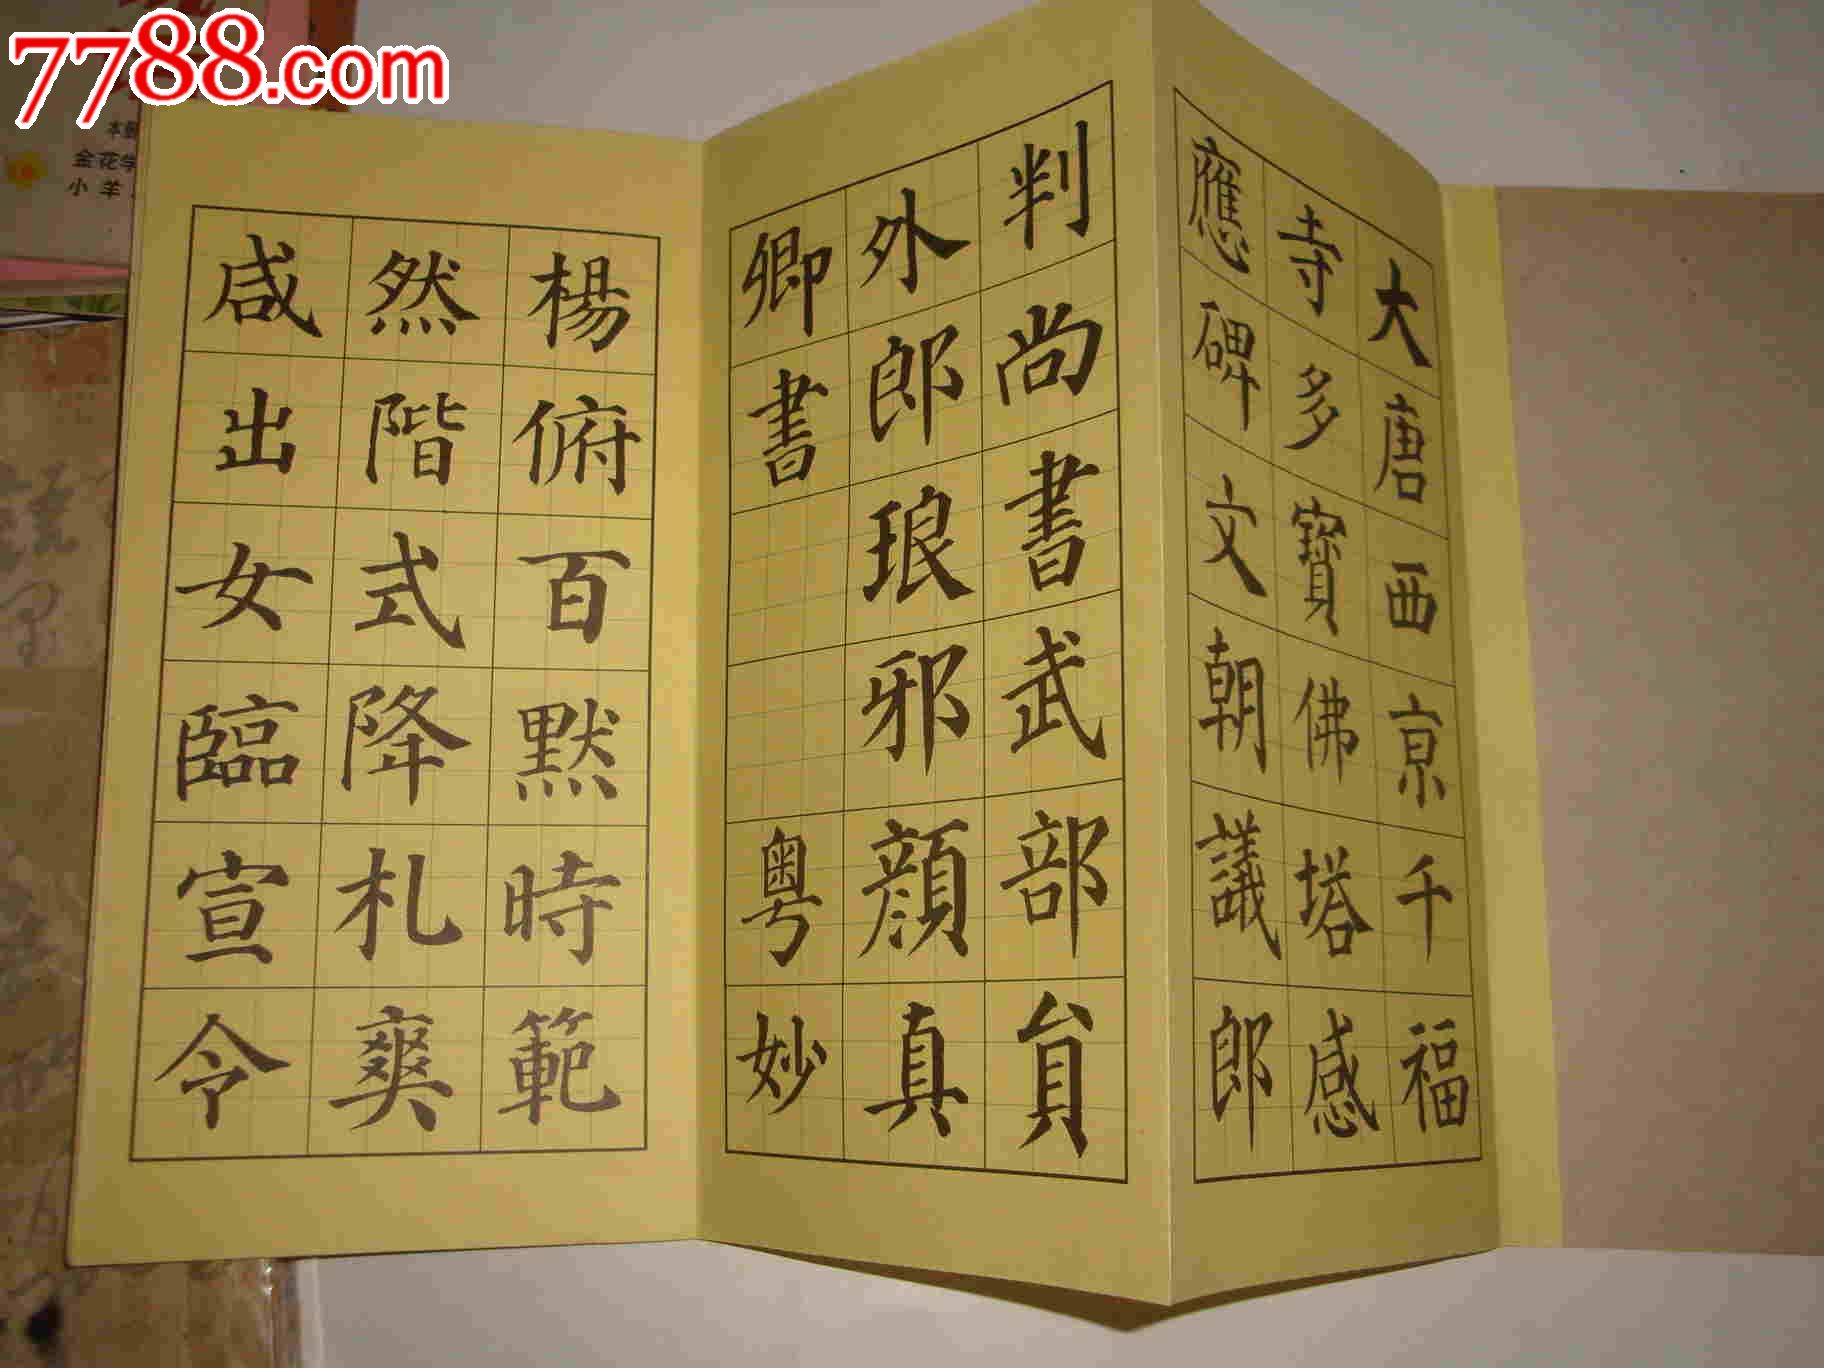 7788.com
本
金花学
小羊
大唐西京千福
寺多寶佛塔感
應碑文朝議郎
判尚書武部員
外郎琅邪顏真
卿書粤妙
楊俯百默時範
然階式降札爽
咸出女臨宣令